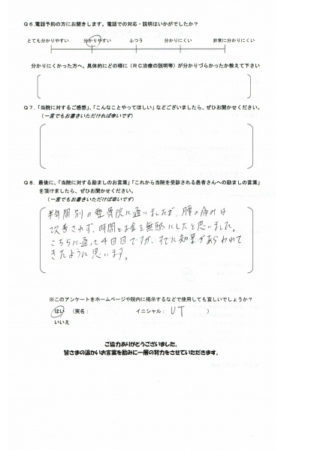 Q6.電話予約の方にお聞きします。電話での対応・説明はいかがでしたか?
とても分かりやすい 分かりやすい ふつう 分かりにくい 非常に分かりにくい
分かりにくかった方へ、具体的にどの様に(RC治療の説明等)が分かりづらかったか教えて下さい
Q7.「当院に対するご感想」、「こんなことやってほしい」などございましたら、ぜひお聞かせください。
(一言でもお書きいただければ幸いです)
Q8.最後に、「当院に対する励ましのお言葉」「これから当院を受診される患者さんへの励ましの言葉」
を頂けましたら、ぜひお聞かせください。
(一言でもお書きいただければ幸いです)
半年間別の整骨院に通いましたが、腰の痛みは
改善されず、時間とお金を無駄にしたと思いました。
こちらに通って4回目ですが、すでに効果があらわれて
きたように思います。
※このアンケートをホームページや院内に掲示するなどで使用しても宜しいでしょうか?
はい (実名: イニシャル: UT )
いいえ
ご協力ありがとうございました。
皆さまの温かいお言葉を励みに一層の努力をさせていただきます。